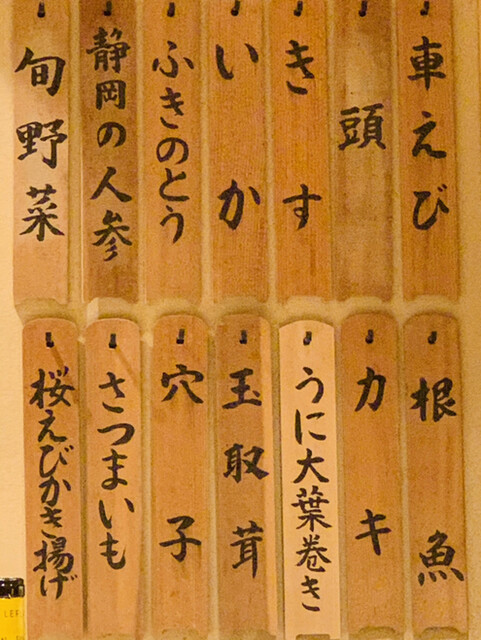 車えび
頭
きす
いか
ふきのとう
静岡の人参
旬野菜
根魚
カキ
うに大葉巻き
玉取茸
穴子
さつまいも
桜えびかき揚げ